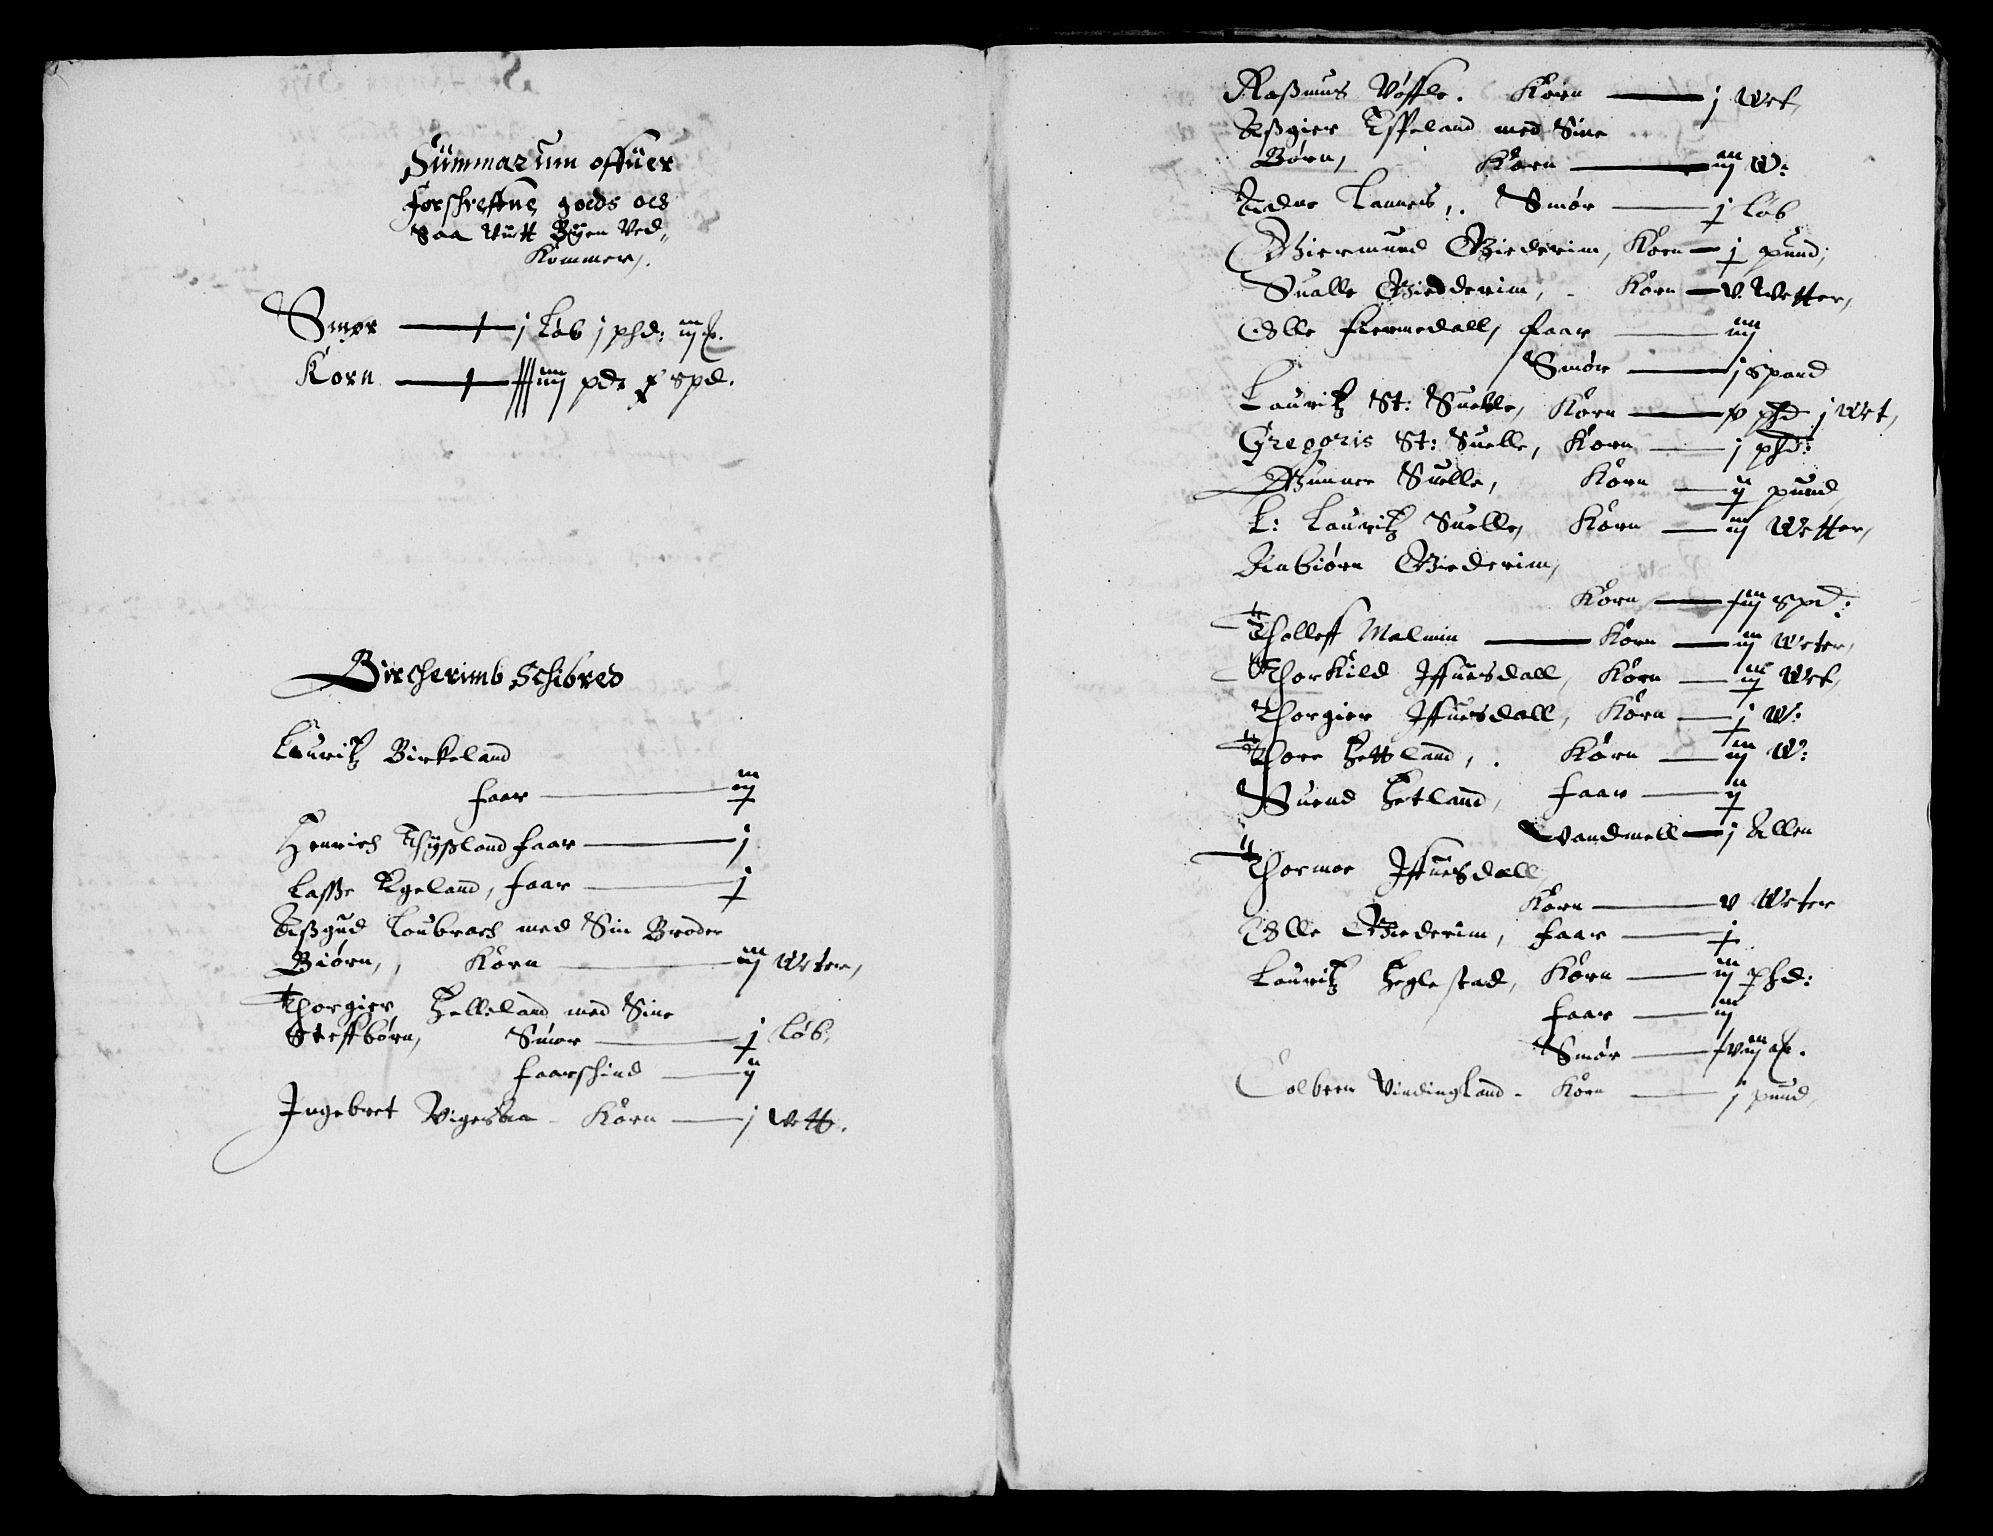 Summarum offuer
forschreffne goeds och
Saa vitt Byen Ved„
Kommer,.
Smør — j Løb j phd: iij
Korn — iiij pd: spd.
Bircherimb Schibred
Lauritz Birkeland
faar — iij
Henrich Thysland faar — j
Lasse Egeland, faar — j
Assgud Loubrach med Sin Broder
Biørn, Korn — iij Weter,
Thorgier Helleland med Sine
Steffbørn, Smør — j Løb,
faarschind — ij
Ingebret Vigesaa - Korn — j Vett.
Rasmus Vøffle. Korn — j Wet,
Assgier Espeland med Sine
Børn, Korn — iij W:
Lauuers, Smør — j Løb
Giermund Giederim, Korn — j pund,
Sualle Giedderim, - Korn — v. Wetter,
Olle fiermedall, faar — iiij
Smør — j Spand
Lauritz St: Suelle, Korn — phd j Wet,
Gregoris St: Suelle, Korn — j phd:
Gunner Suelle, Korn — ij pund
L: Lauritz Suelle, Korn — iij Wetter,
Anbiørn Giederim,
Korn — iij spd:
Tholleff Malmin — Korn — iij Weter,
Thorkild Iffuesdall, Korn — iij Wet,
Thorgier Iffuesdall, Korn — j W:
Thore Hettland, . Korn — iij W:
Suend Hetland, faar — ij
Wandmell — j Allen
Thormoe Iffuesdall
Korn — v Weter
Olle Giederim, faar — j
Lauritz Heglestad, Korn — iij phd:
faar — iij
Smør —
Colbeen Vindingland - Korn — j pund,